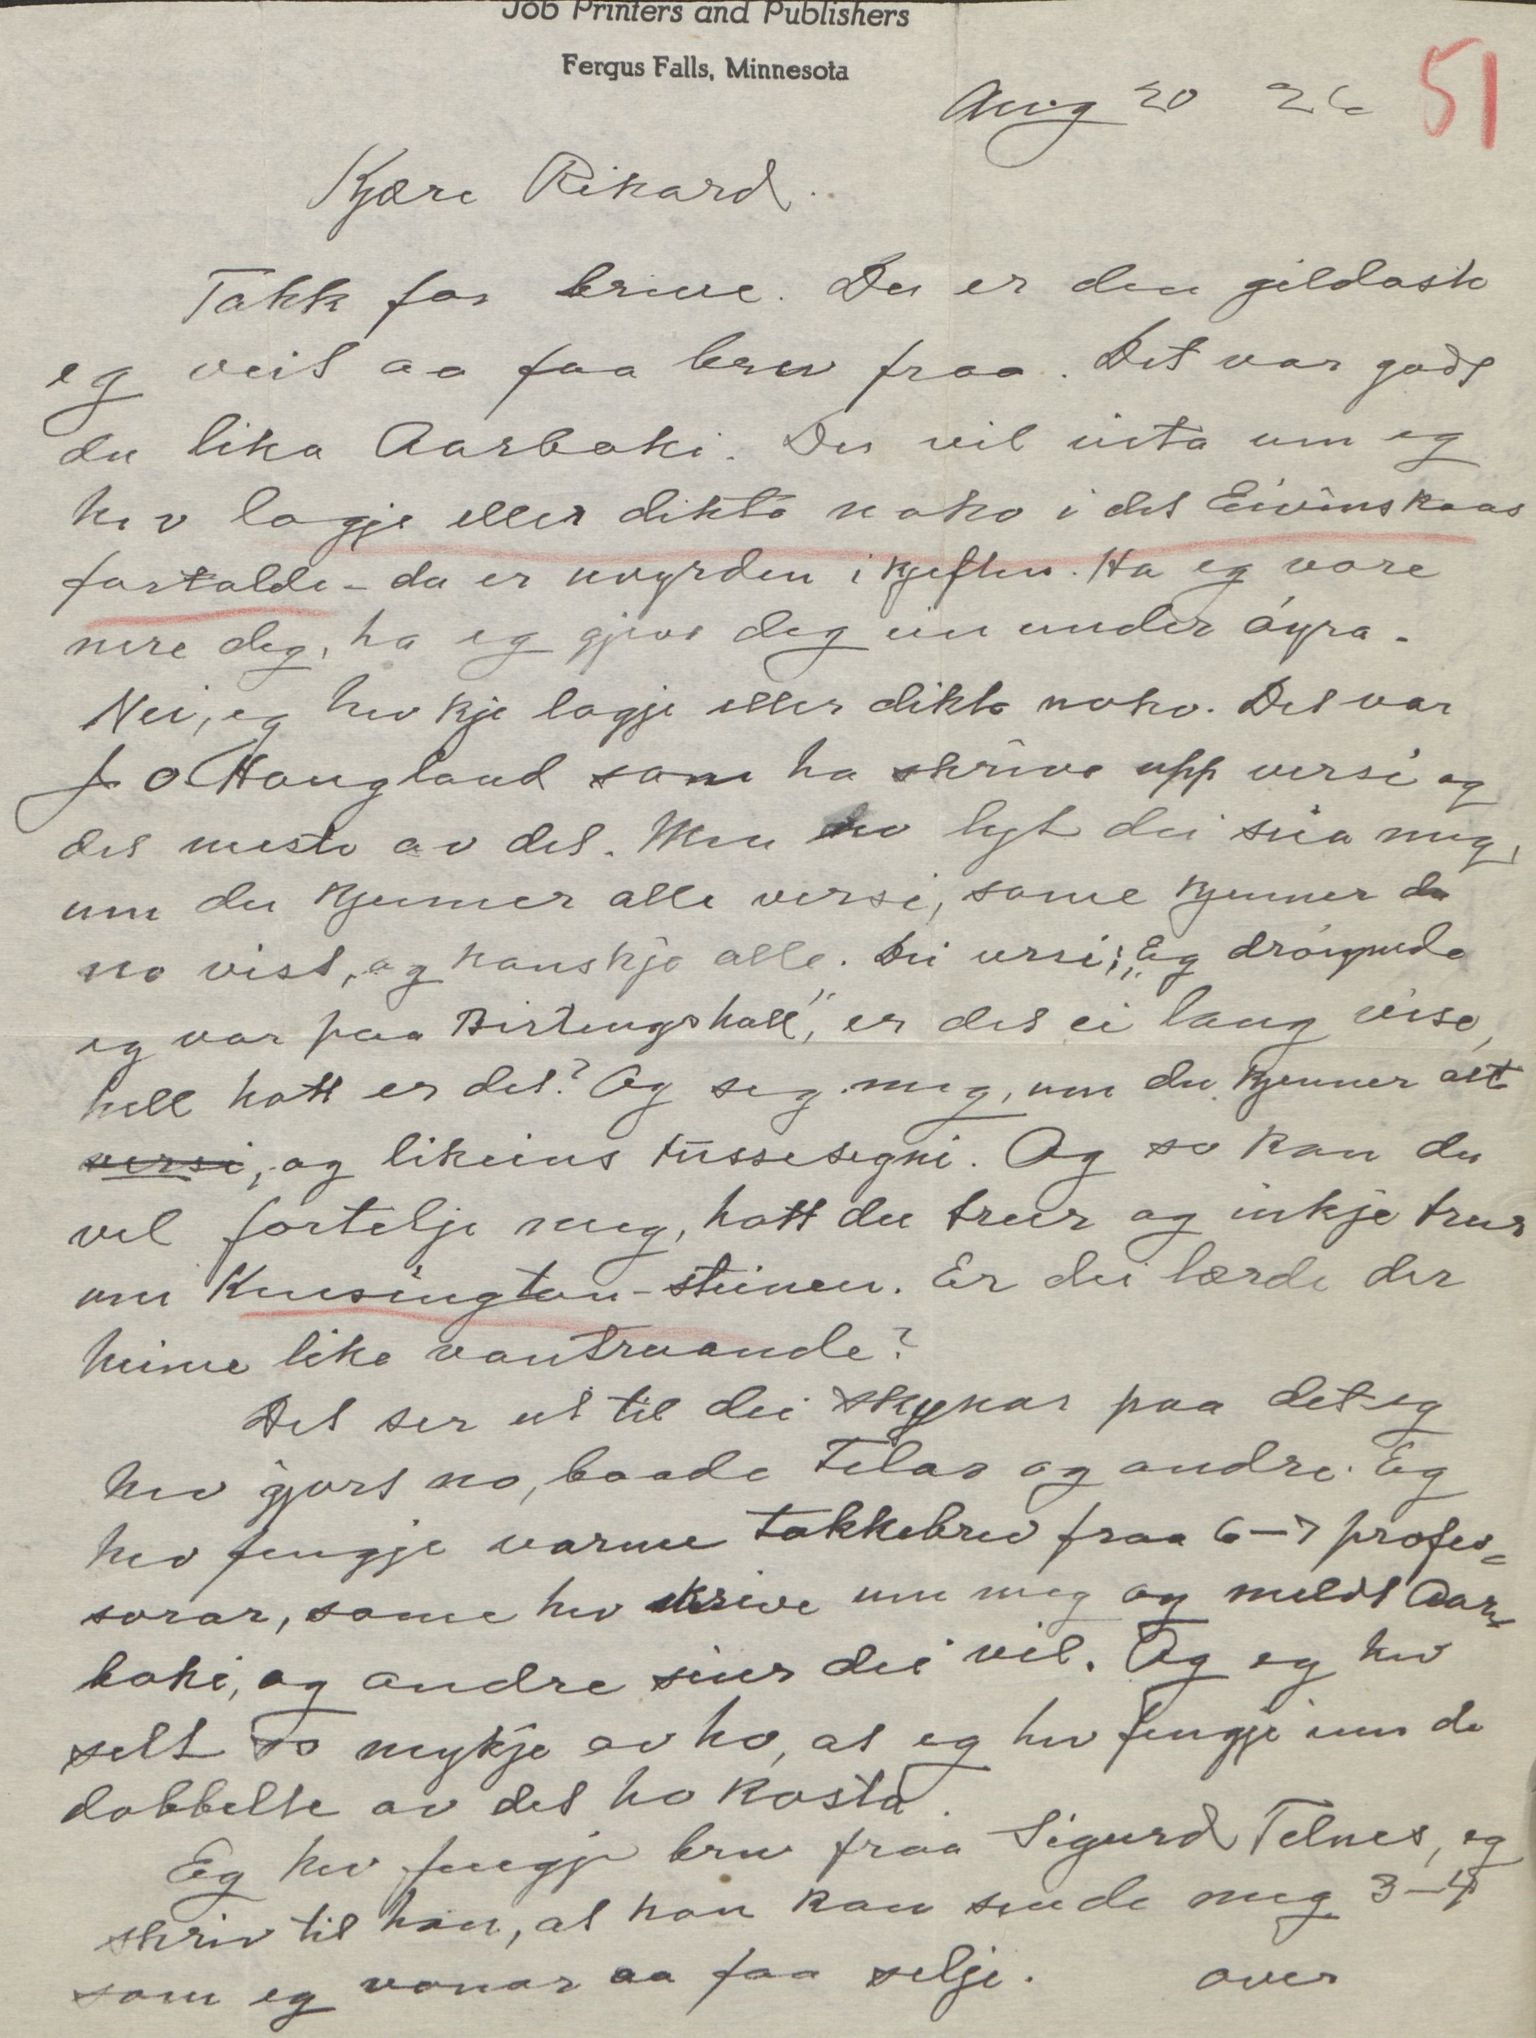 Job Printers and Publishers
Fergus Falls, Minnesota
Aug 20 26 51
Kjære Rikard.
Takk for breve. Du er den gildaste
eg veit aa faa brev fraa. Det var godt
du lika Aarboki. Du vil vita um eg
hev lagje eller dikta noko i det Eivinskaas
fortalde - da er uvyrden i kjeften. Ha eg vore
nere deg, ha eg gjeve deg ein under öyra.
Nei, eg hev kje lagje eller dikta noko. Det var
J. O. Haugland som ha skrive upp versi og
det meste av det. Men no lyt du seia meg,
um du kjenner alle versi, some kjenner du
no vist, og kanskje alle. Dei versi; "Eg dröymde
eg var paa Birtingshall," er det ei lang vise,
hell hott er det? Og seg meg, um du kjenner alt
versi, og likeins tussesegni. Og so kan du
vel fortelje meg, hott du trur og inkje trur
um Kensington-steinen. Er dei lærde der
heime like vantruande?
Det ser ut til dei skynar paa det eg
hev gjort no, baade Telar og andre. Eg
hev fengje varme takkebrev fraa 6-7 profes=
sorar, some hev skrive um meg og meldt Aar=
boki, og andre seier dei vil. Og eg hev
selt so mykje av ho, at eg hev fengje inn de
dobbelte av det ho kosta.
Eg hev fengje brev fraa Sigurd Telnes, eg
skriv til han, at han kan sende meg 3-4
som eg vonar aa faa selje. over